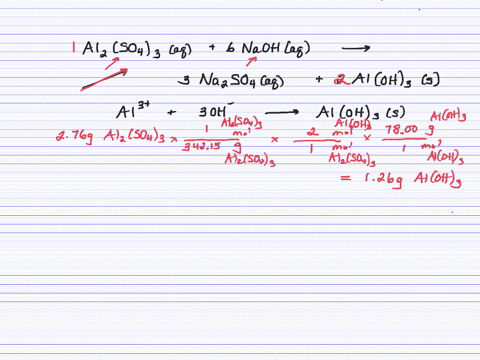 1 Al₂(SO₄)₃ (aq) + 6 NaOH(aq) →
3 Na₂SO₄(aq) + 2 Al(OH)₃ (s)
Al³⁺ + 3OH⁻ → Al(OH)₃(s)
2.76g Al₂(SO₄)₃ × 1 mol Al₂(SO₄)₃ / 342.15 g Al₂(SO₄)₃ × 2 mol Al(OH)₃ / 1 mol Al₂(SO₄)₃ × 78.00 g Al(OH)₃ / 1 mol Al(OH)₃
= 1.26g Al(OH)₃